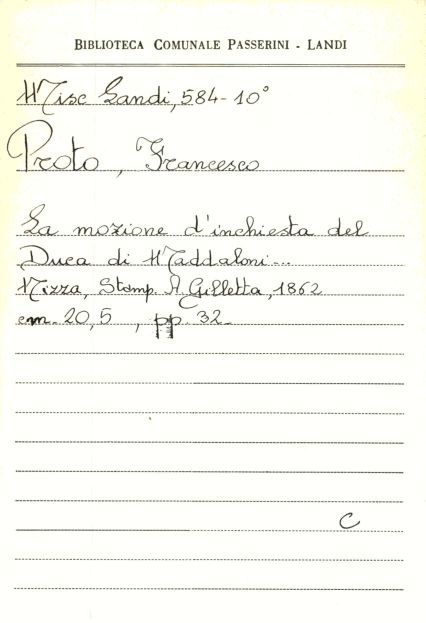 BIBLIOTECA COMUNALE PASSERINI - LANDI
Misc Landi, 584-10°
Proto, Francesco
La mozione d'inchiesta del
Duca di Maddaloni...
Nizza, Stamp. A. Gilletta, 1862
cm. 20,5 , pp. 32
C